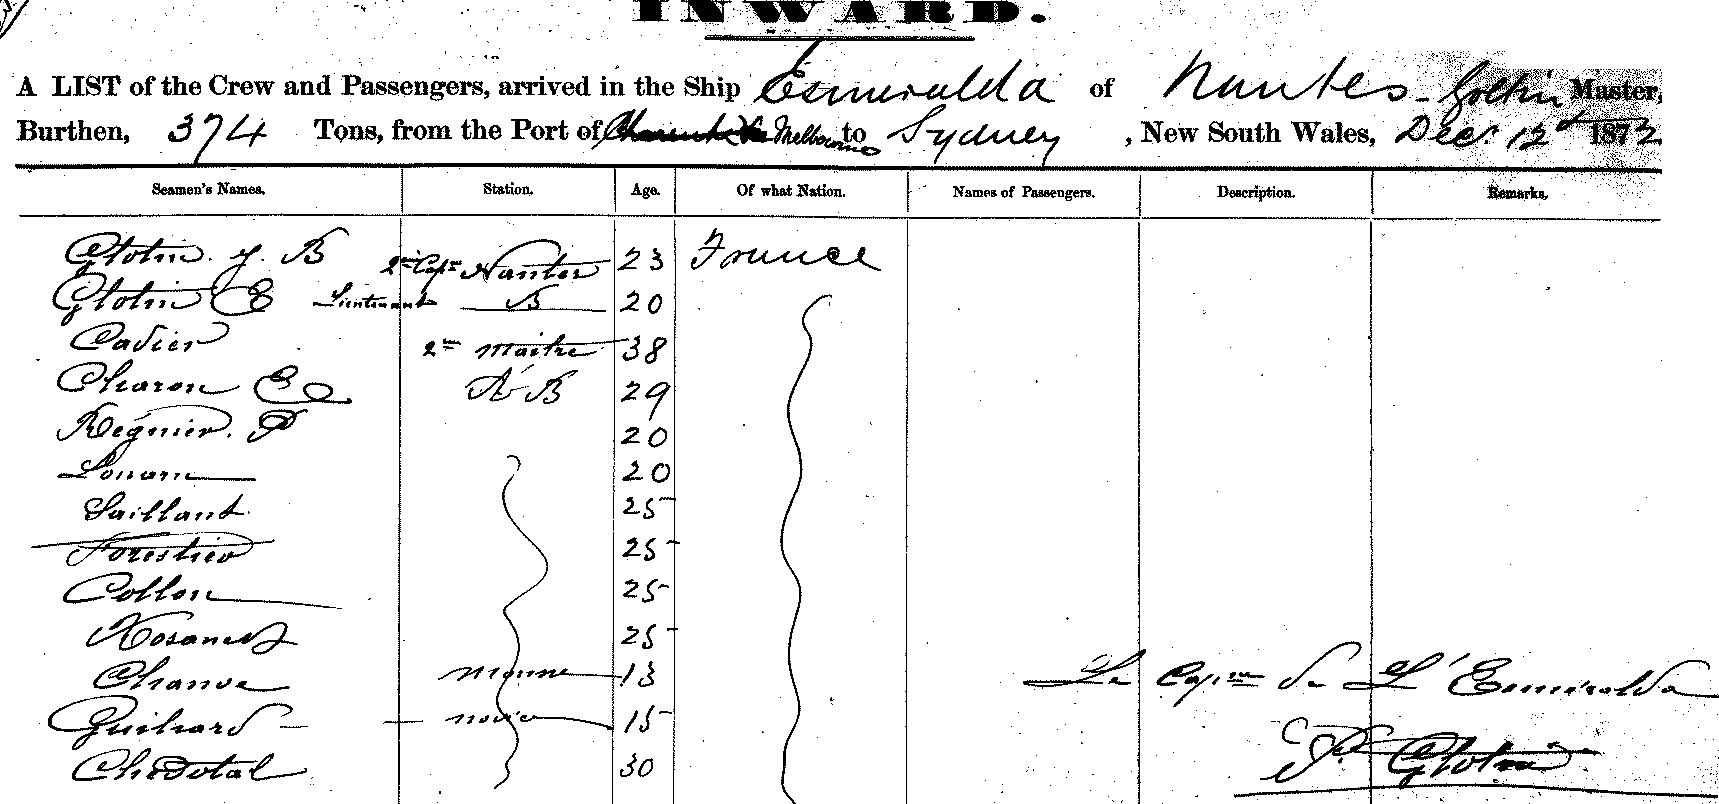 INWARD.
A LIST of the Crew and Passengers, arrived in the Ship Esmeralda of Nantes - Master,
Burthen, 374 Tons, from the Port of Melbourne to Sydney, New South Wales, Dec. 12 1872
Seamen's Names. Station. Age. Of what Nation. Names of Passengers. Description. Remarks.
Glotin. J. B 2nd Capn Nantes 23 France
Glotin E Lieutenant B 20
Cadier 2me maitre 38
Charon E A B 29
Regnier. P 20
Lonarn 20
Saillant 25
Forestier 25
Collon 25
25
Chauve mousse 13 Le Capne de L'Esmeralda
Guihard novice 15
Chedotal 30 Glotin